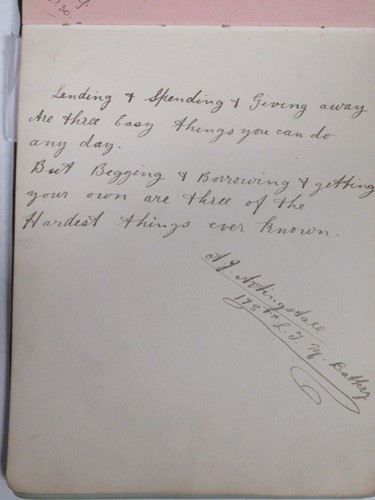 130.
Lending & Spending & Giving away
Are three Easy things you can do
any day.
But Begging & Borrowing & getting
your own are three of the
Hardest things ever known.
A J. Astingstall
178th L. T. M. Battery